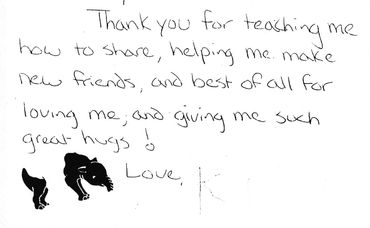 Thank you for teaching me
how to share, helping me make
new friends, and best of all for
loving me, and giving me such
great hugs!
Love,